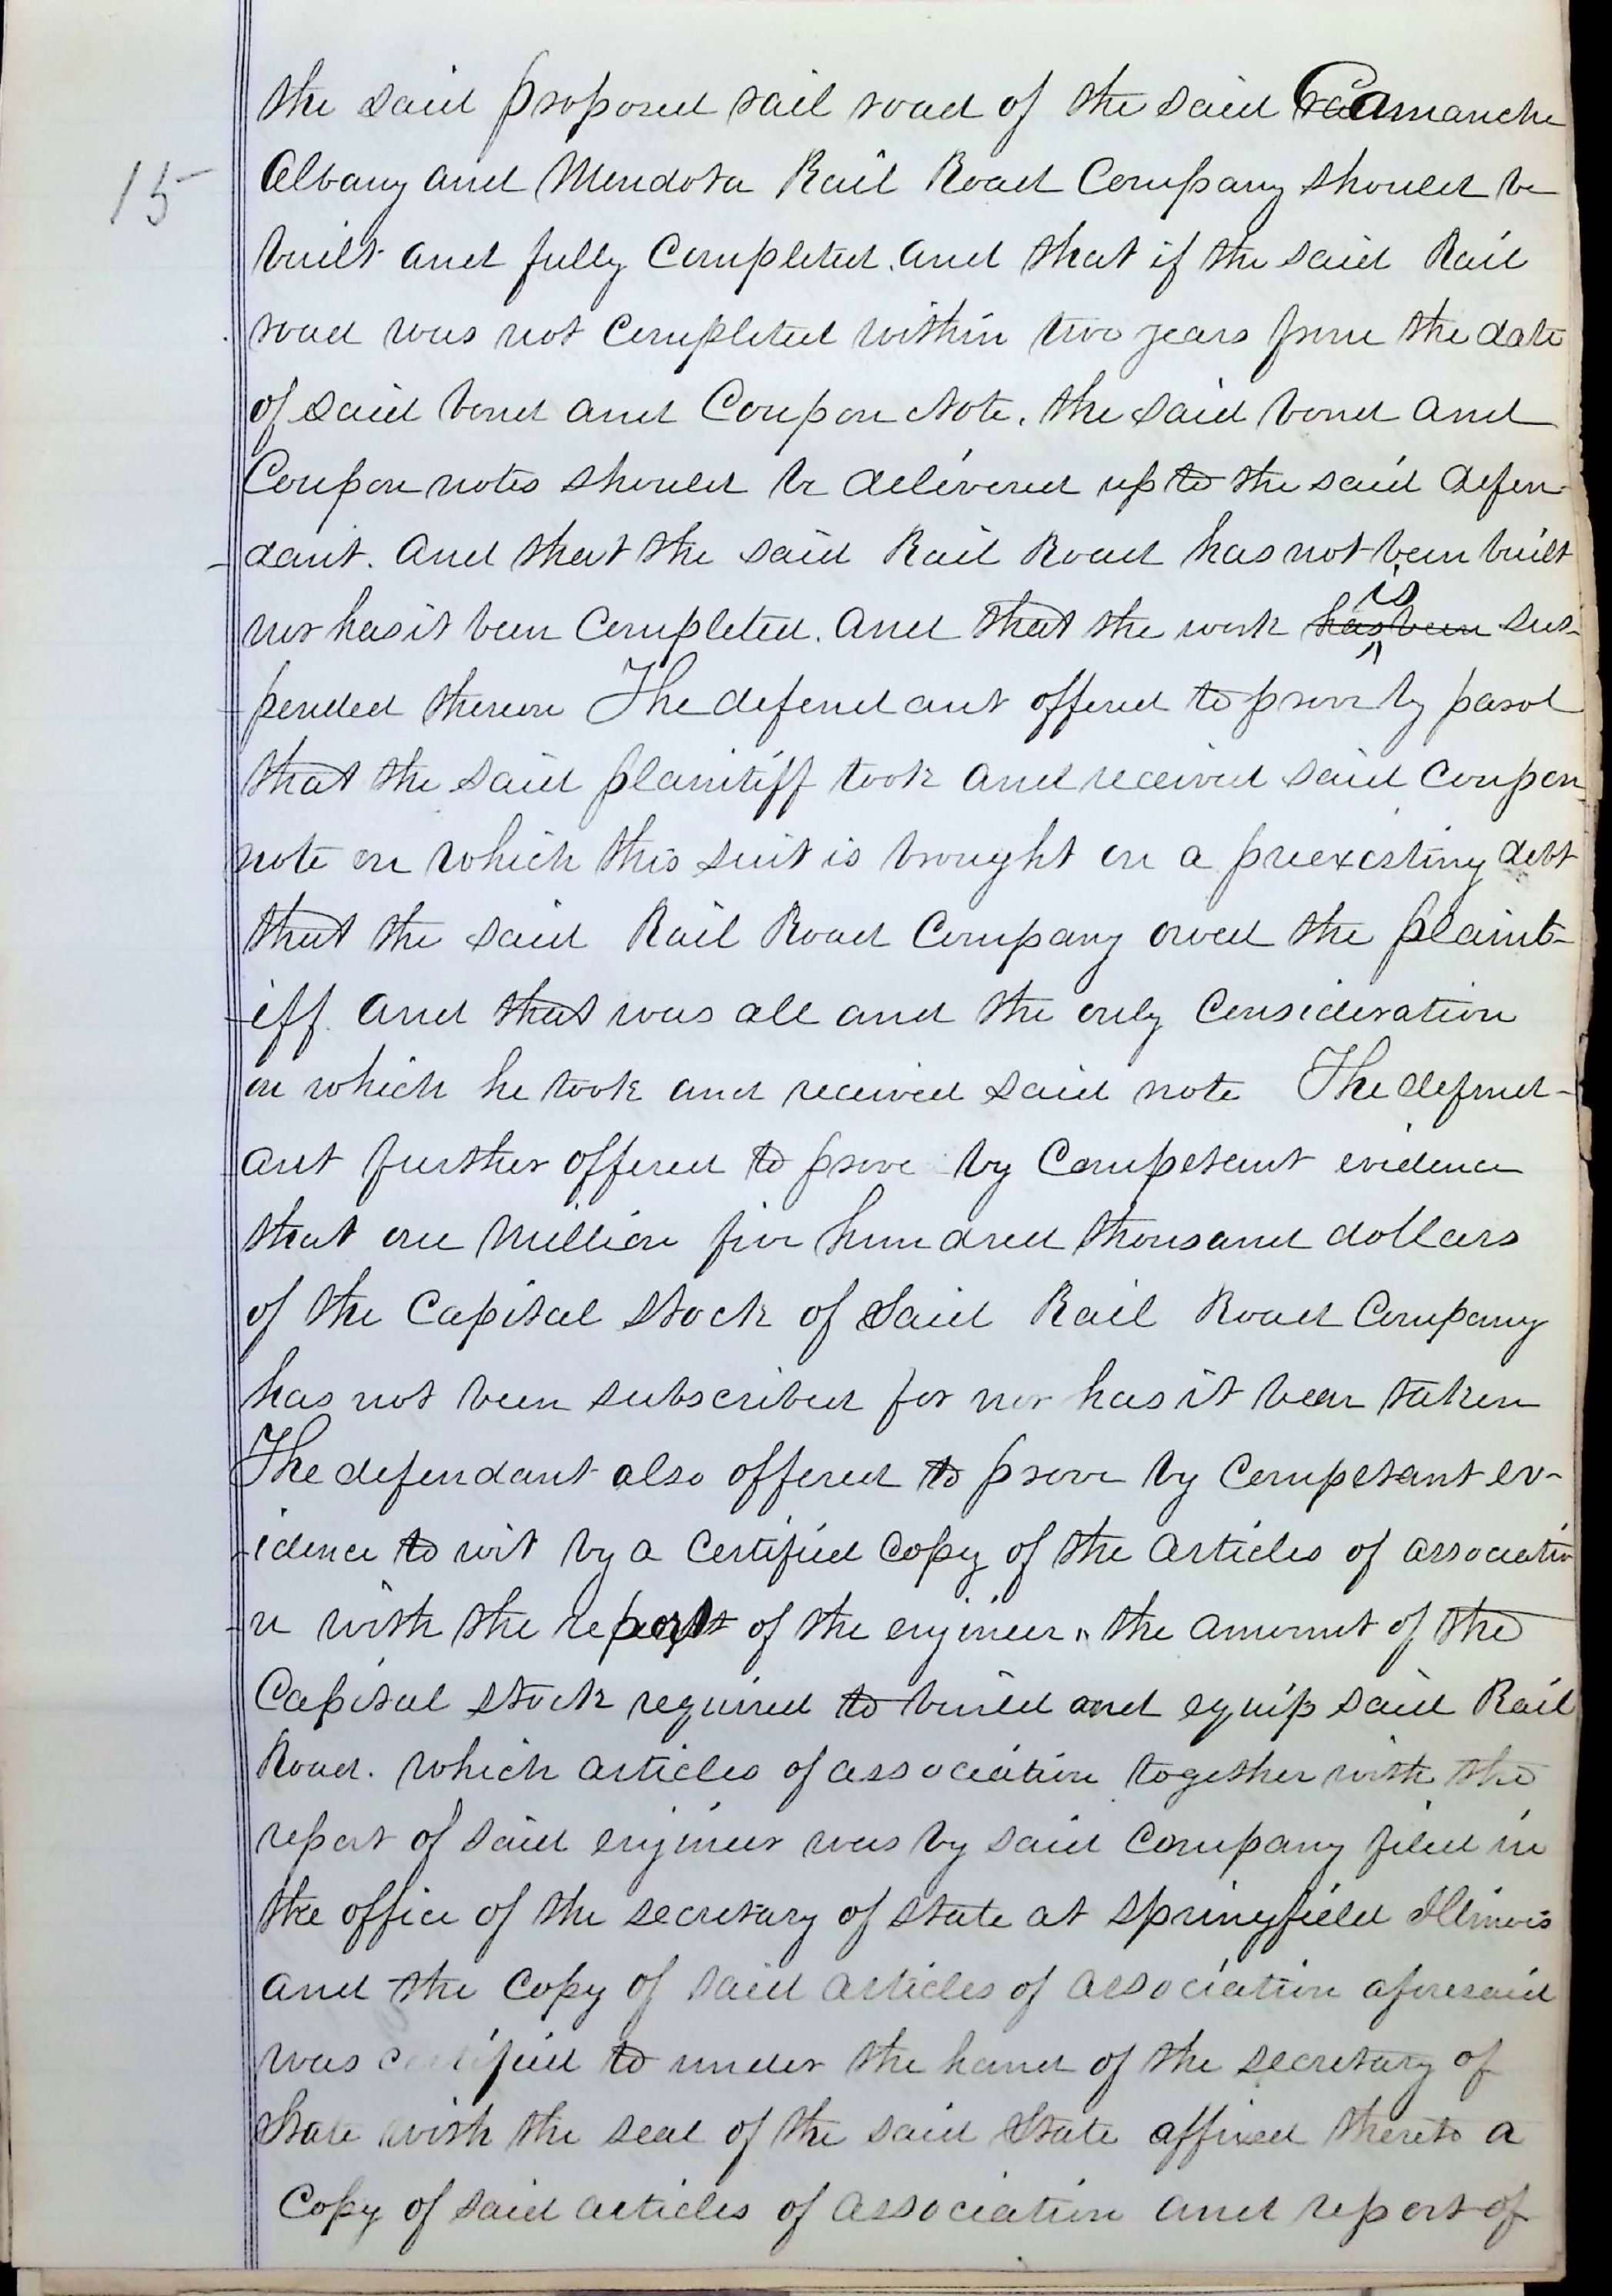 the said proposed rail road of the said Camanche
15
Albany and Mendota Rail Road Company should be
built and fully Completed. and that if the said Rail
road was not Completed within two years from the date
of said bond and Coupon Note. the said bond and
Coupon notes should be delivered up to the said defen-
dant. And that the said Rail Road has not been built
nor has it been Completed. And that the work has been is sus-
pended thereon The defendant offered to prove by parol
that the said plaintiff took and received said Coupon
note on which this suit is brought on a preexisting debt
that the said Rail Road Company owed the plaint-
iff. And that was all and the only Consideration
on which he took and received said note The defend-
ant further offered to prove by Competant evidence
that one Million five hundred thousand dollars
of the Capital Stock of Said Rail Road Company
has not been subscribed for nor has it been taken
The defendant also offered to prove by Competant ev-
idence to wit by a Certified Copy of the Articles of associatio
n with the report of the engineer, the amount of the
Capital Stock required to build and equip said Rail
Road. Which articles of association together with the
report of said engineer was by said Company filed in
the office of the secretary of state at Springfield Illinois
and the Copy of said articles of association aforesaid
was certified to under the hand of the secretary of
State with the seal of the said State affixed thereto a
Copy of said articles of association and report of